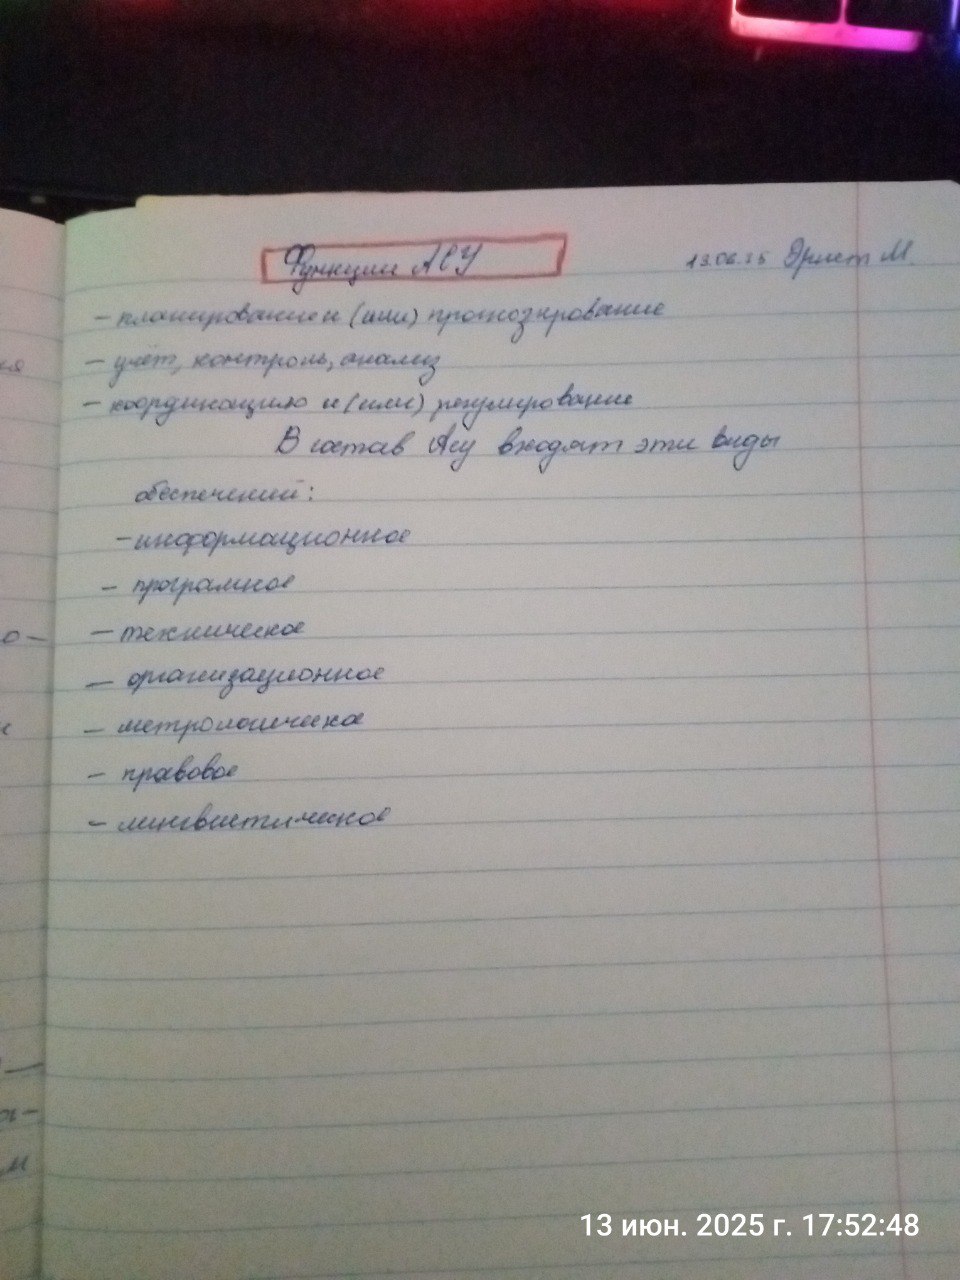 Функции АСУ
13.06.25 Эрнст М
– планирование и (или) прогнозирование
– учёт, контроль, анализ
– координацию и (или) регулирование
В состав Асу входят эти виды
обеспечений:
– информационное
– програмное
– техническое
– организационное
– метрологическое
– правовое
– лингвистическое
13 июн. 2025 г. 17:52:48